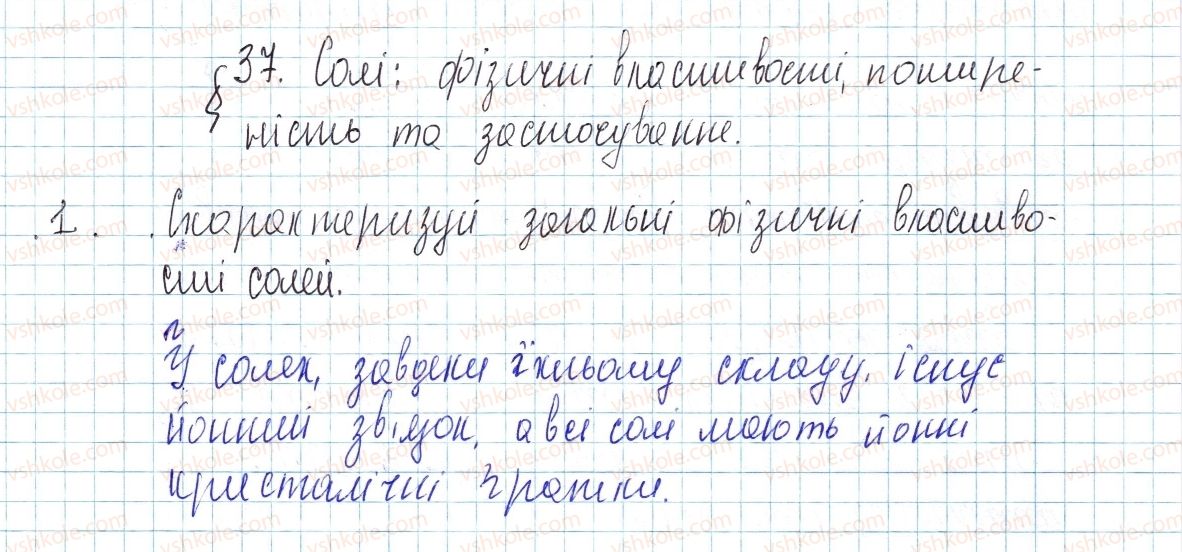 § 37. Солі: фізичні властивості, пошире-
ність та застосування.
1. Схарактеризуй загальні фізичні властиво-
сті солей.
У солях, завдяки їхньому складу, існує
йонний зв'язок, а всі солі мають йонні
кристалічні ґратки.